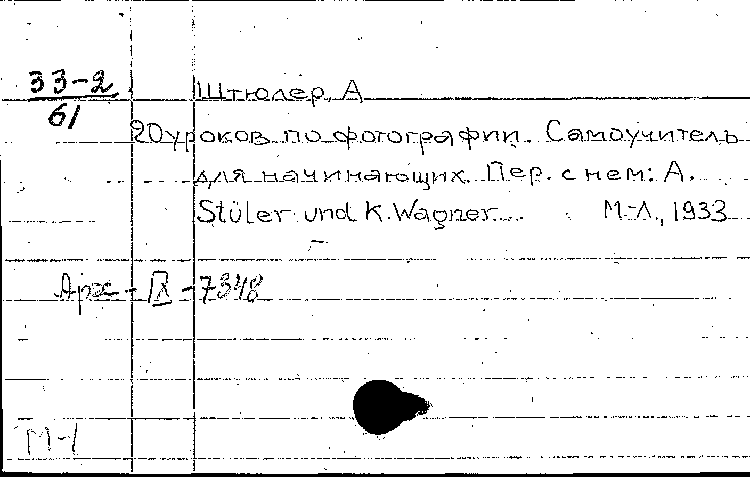 33-2
61
Штюлер, А
20 уроков по фотографии. Самоучитель
для начинающих. Пер. с нем: А.
Stüler und K. Wagner. М-Л., 1933
IX - 7348
М-1